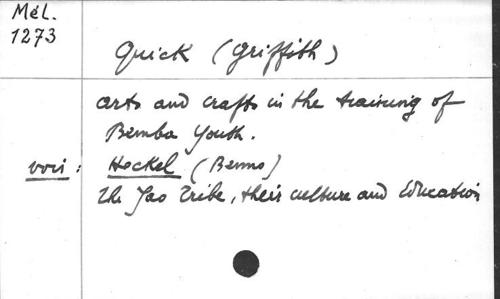 Mél.
1273
Quick (Griffith)
arts and crafts in the training of
Bemba Youth.
voir : Heckel (Benno)
The Yao Tribe, their culture and Education